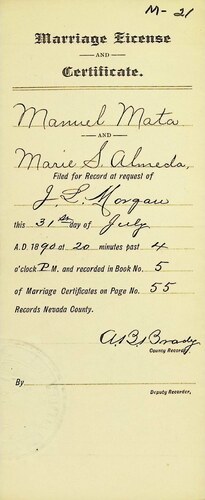 M-21
Marriage License
AND
Certificate.
Manuel Mata
AND
Marie S. Almeda,
Filed for Record at request of
J. L. Morgan
this 31st day of July
A.D. 1890 at 20 minutes past 4
o'clock P. M. and recorded in Book No. 5
of Marriage Certificates on Page No. 55
Records Nevada County.
A.B. Brady
County Recorder
By
Deputy Recorder,